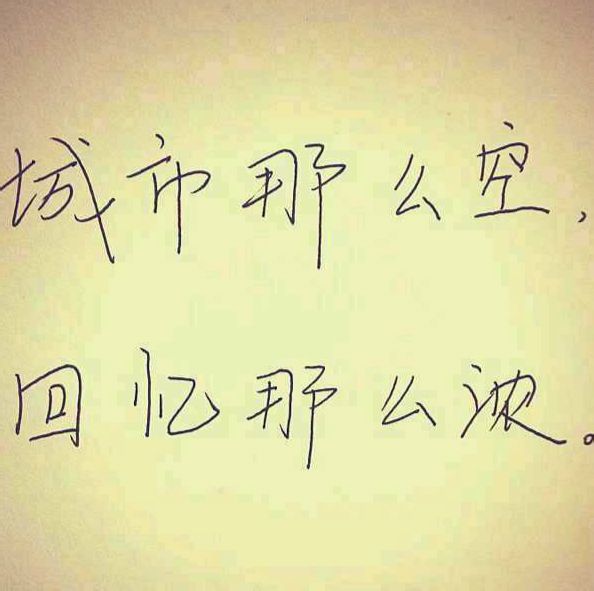 城市那么空，
回忆那么浓。